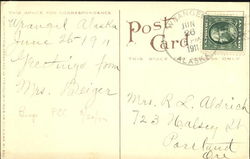 THIS SPACE FOR CORRESPONDENCE
Post
Card
Wrangel Alaska
June 26-1911
Greetings from
Mrs. Beiger
WRANGELL
JUN
26
1911
ALASKA
Mrs. R. L. Aldrich
723 Halsey St
Portland
Ore